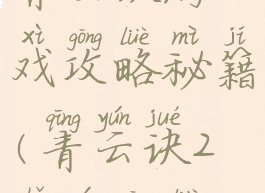 xì gōng lüè mì jí
戏攻略秘籍
qīng yún jué
(青云诀2